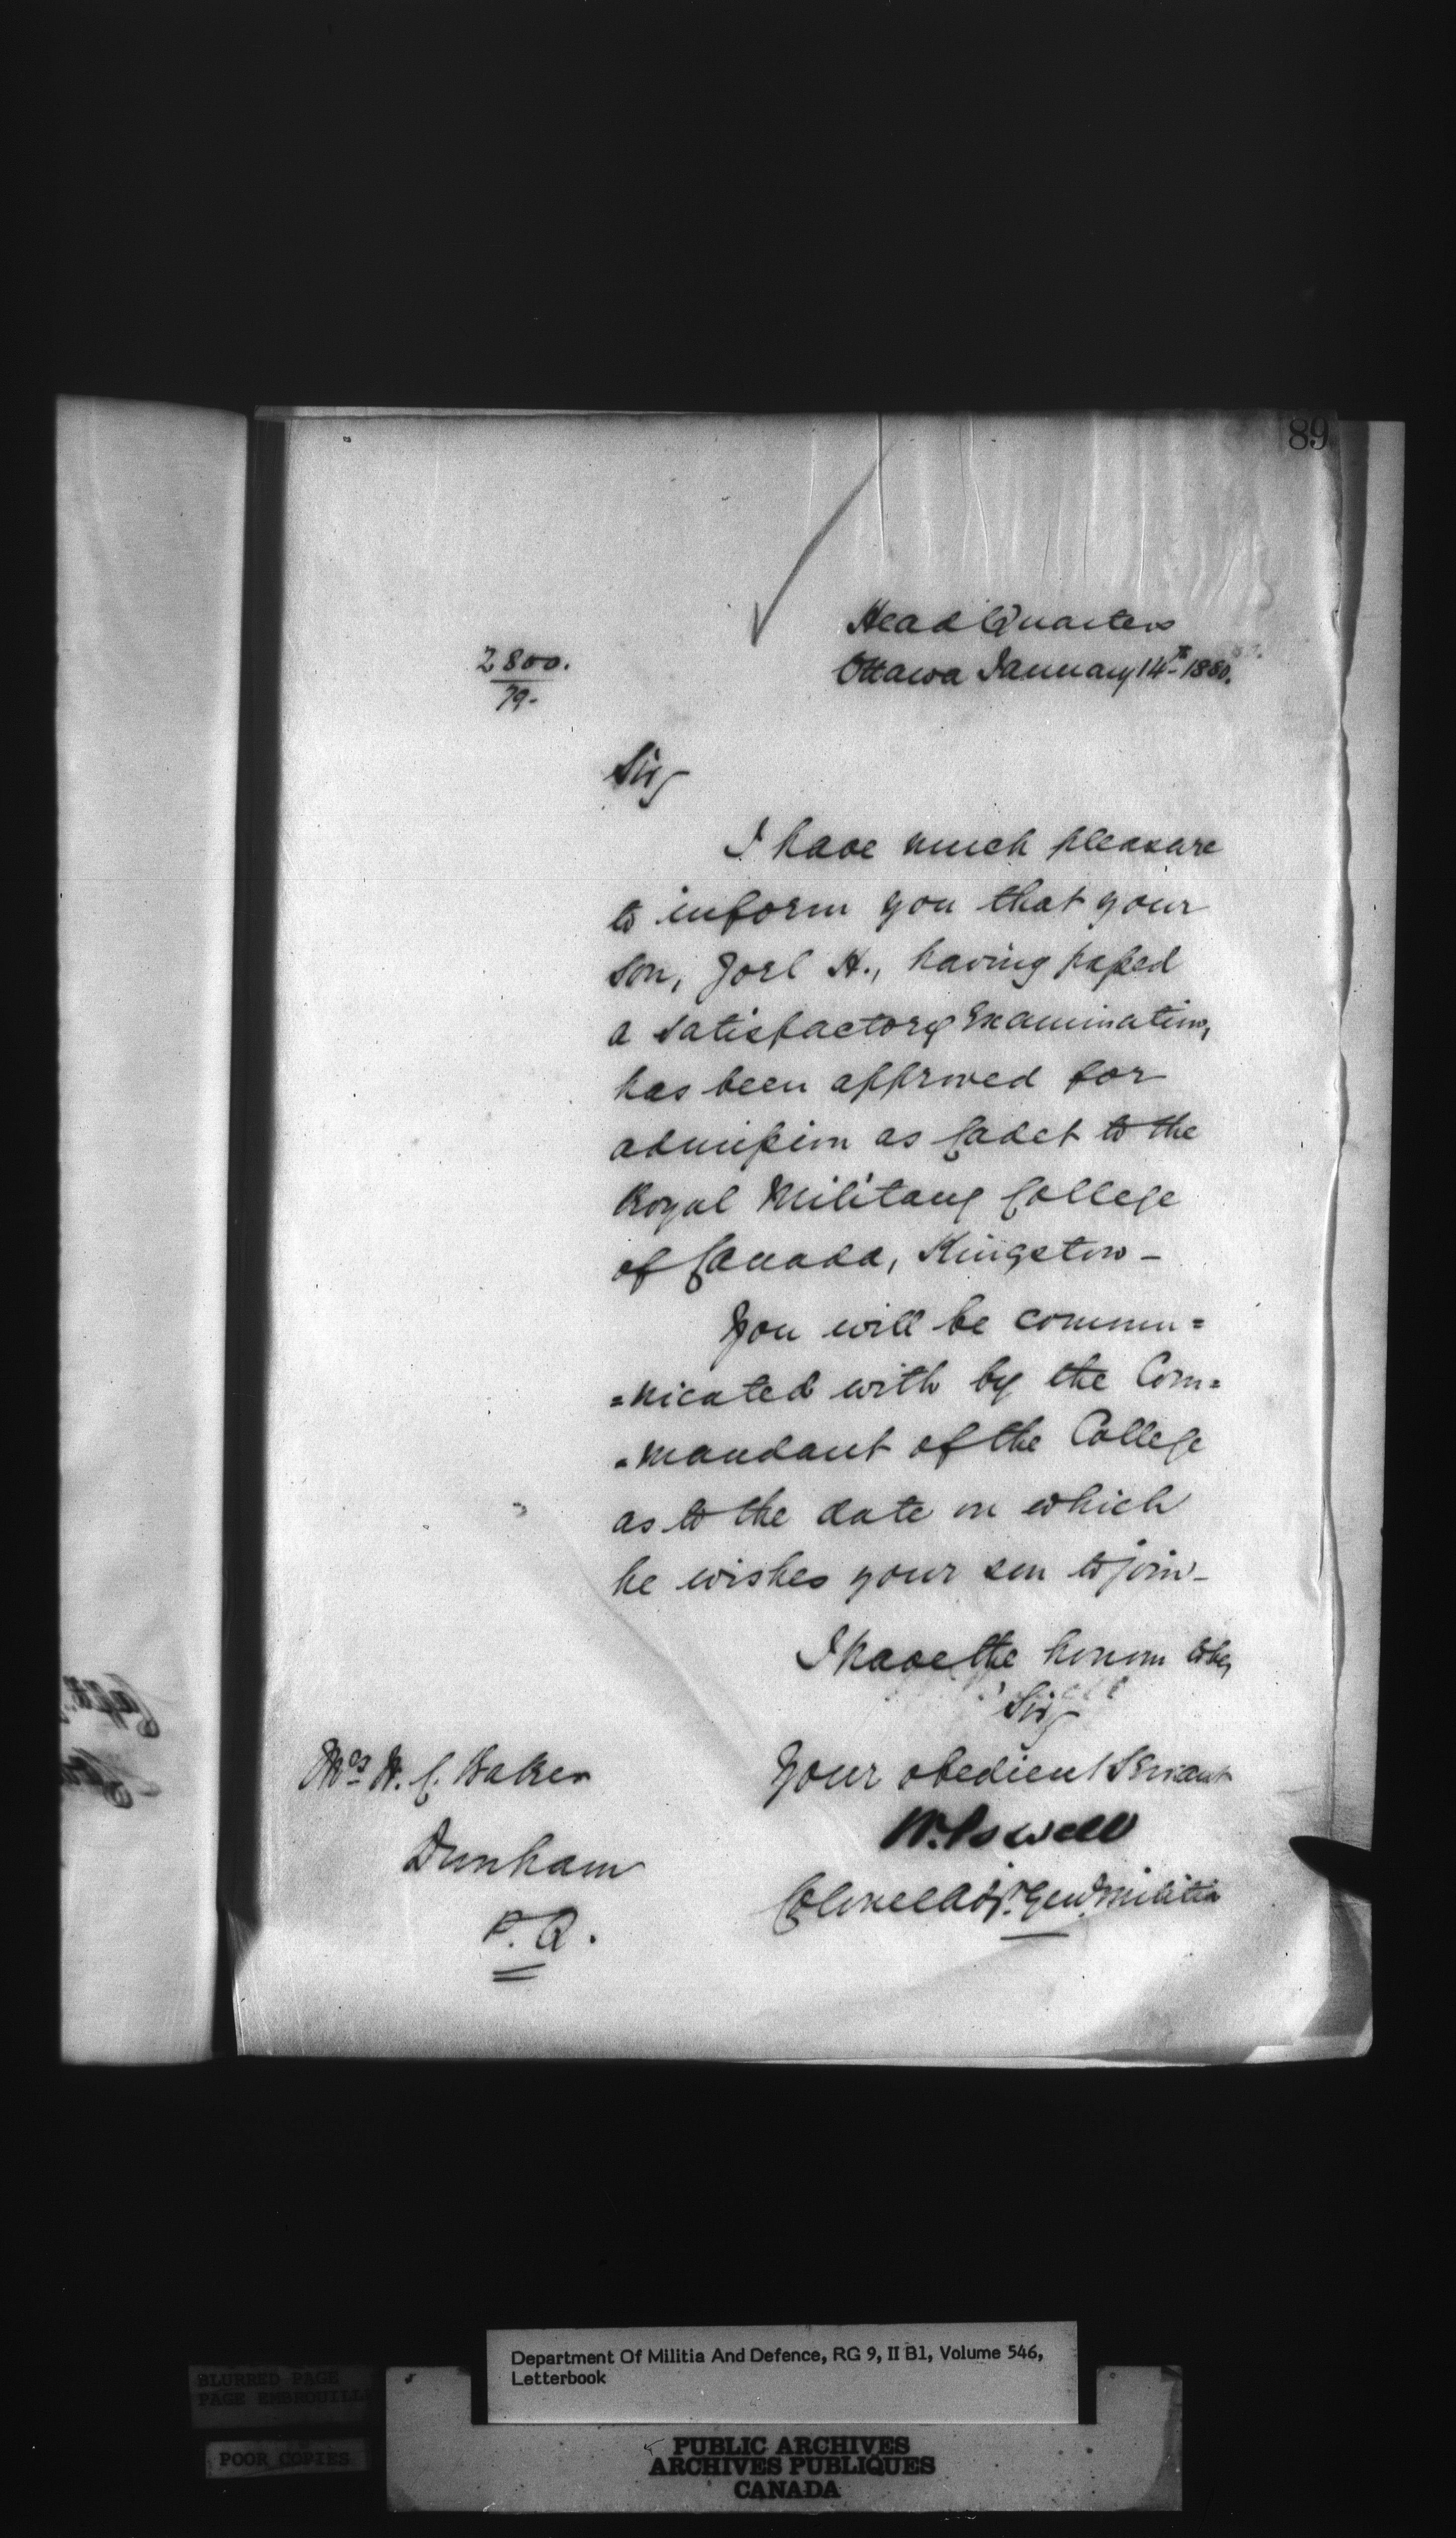 89
Head Quarters
Ottawa January 14th 1880.
2800.
79-
Sir,
I have much pleasure
to inform you that your
son, Joel H., having passed
a satisfactory Examination,
has been approved for
admission as Cadet to the
Royal Military College
of Canada, Kingston -
You will be commu=
=nicated with by the Com=
=mandant of the College
as to the date on which
he wishes your son to join -
I have the honor to be,
Sir,
Your obedient Servant
W. Powell
Colonel Adjt. Genl. Militia
C. Baker
Dunham
P.Q.
Department Of Militia And Defence, RG 9, II B1, Volume 546,
Letterbook
BLURRED PAGE
PAGE EMBROUILL
POOR COPIES
PUBLIC ARCHIVES
ARCHIVES PUBLIQUES
CANADA